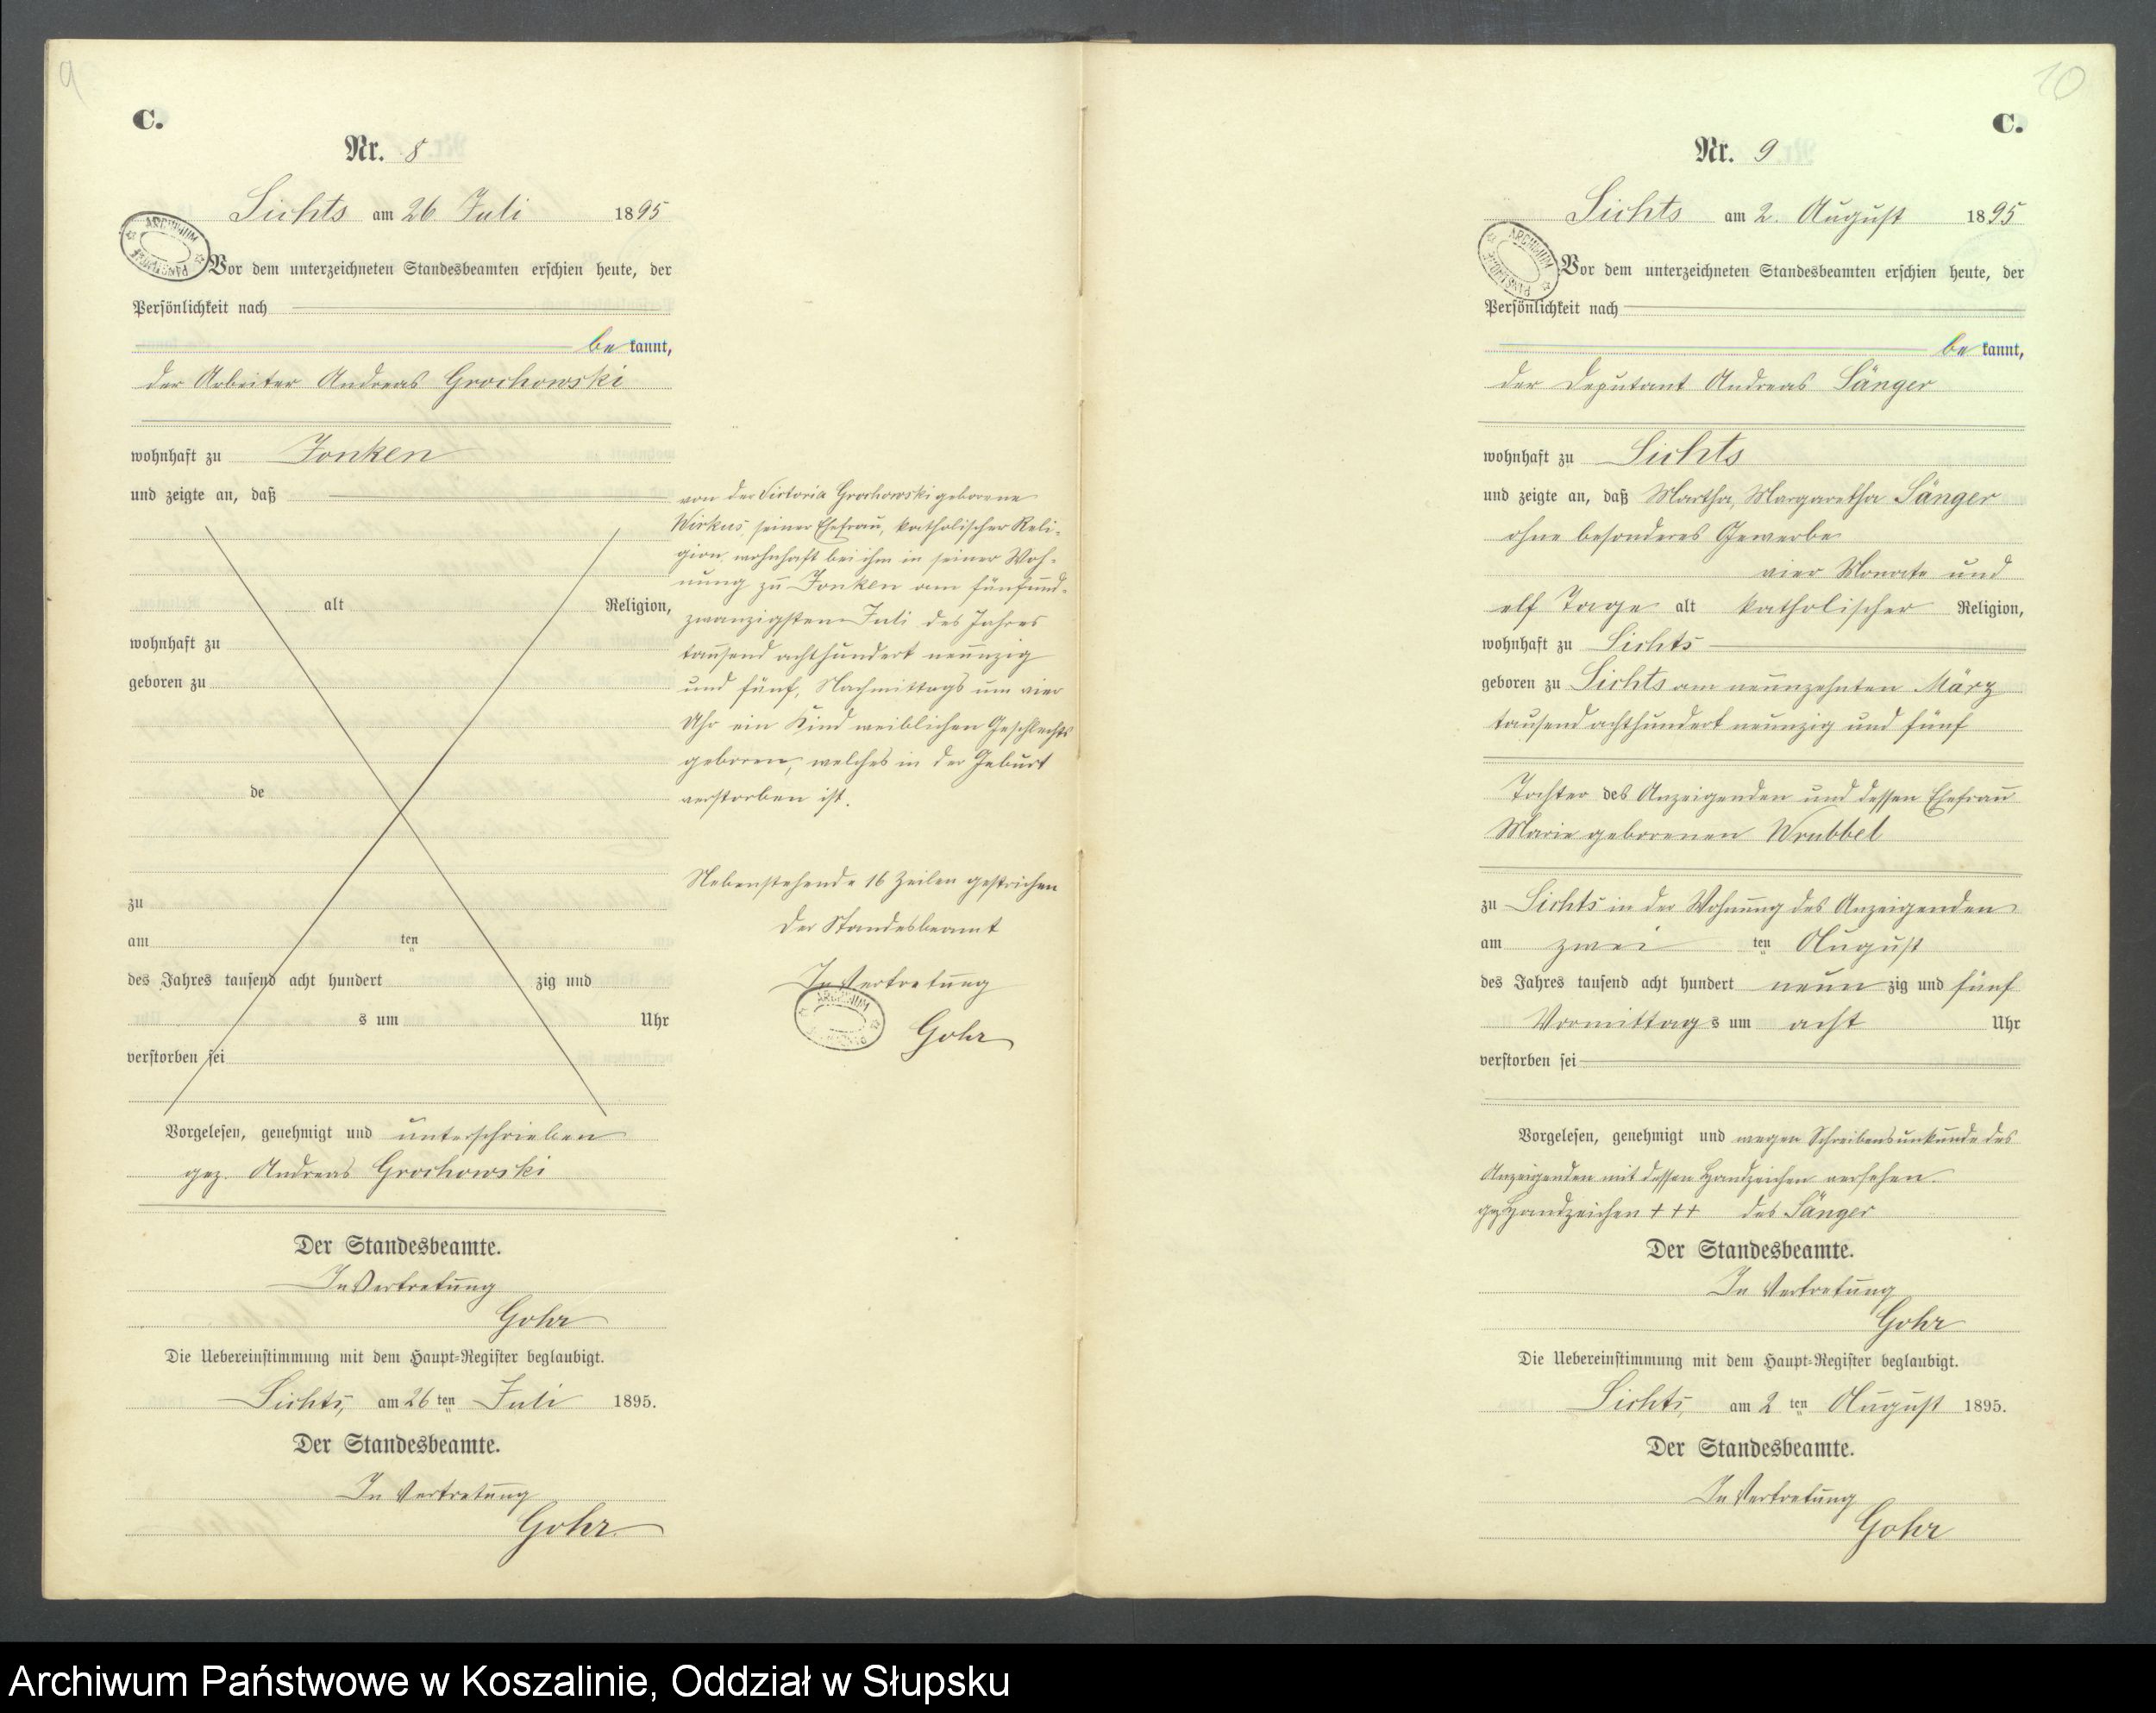 9
C.
Nr. 8
Lichts am 26 Juli 1895
ARCHIWUM PAŃSTWOWE
Vor dem unterzeichneten Standesbeamten erschien heute, der
Persönlichkeit nach
be kannt,
der Arbeiter Andreas Grochowski
wohnhaft zu Jonken
und zeigte an, daß
alt Religion,
wohnhaft zu
geboren zu
de
zu
am ten
des Jahres tausend acht hundert zig und
s um Uhr
verstorben sei
Vorgelesen, genehmigt und unterschrieben
gez. Andreas Grochowski
Der Standesbeamte.
In Vertretung
Gohr
Die Uebereinstimmung mit dem Haupt-Register beglaubigt.
Lichts, am 26 ten Juli 1895.
Der Standesbeamte.
In Vertretung
Gohr
von der Victoria Grochowski geborene
Wirkus, seiner Ehefrau, katholischer Reli-
gion, wohnhaft bei ihm in seiner Woh-
nung zu Jonken am fünfund-
zwanzigsten Juli des Jahres
tausend achthundert neunzig
und fünf, Nachmittags um vier
Uhr ein Kind weiblichen Geschlechts
geboren, welches in der Geburt
verstorben ist.
Nebenstehende 16 Zeilen gestrichen
Der Standesbeamt
In Vertretung
ARCHIWUM
Gohr
10
C.
Nr. 9
Lichts am 2. August 1895
ARCHIWUM PAŃSTWOWE
Vor dem unterzeichneten Standesbeamten erschien heute, der
Persönlichkeit nach
be kannt,
der Deputant Andreas Sänger
wohnhaft zu Lichts
und zeigte an, daß Martha, Margaretha Sänger
ohne besonderes Gewerbe
vier Monate und
elf Tage alt katholischer Religion,
wohnhaft zu Lichts
geboren zu Lichts am neunzehnten März
tausend achthundert neunzig und fünf
Tochter des Anzeigenden und dessen Ehefrau
Marie geborenen Wrubbel
zu Lichts in der Wohnung des Anzeigenden
am zwei ten August
des Jahres tausend acht hundert neun zig und fünf
Vormittag s um acht Uhr
verstorben sei
Vorgelesen, genehmigt und wegen Schreibensunkunde des
Anzeigenden mit dessen Handzeichen versehen.
gez Handzeichen +++ des Sänger
Der Standesbeamte.
In Vertretung
Gohr
Die Uebereinstimmung mit dem Haupt-Register beglaubigt.
Lichts, am 2 ten August 1895.
Der Standesbeamte.
In Vertretung
Gohr
Archiwum Państwowe w Koszalinie, Oddział w Słupsku